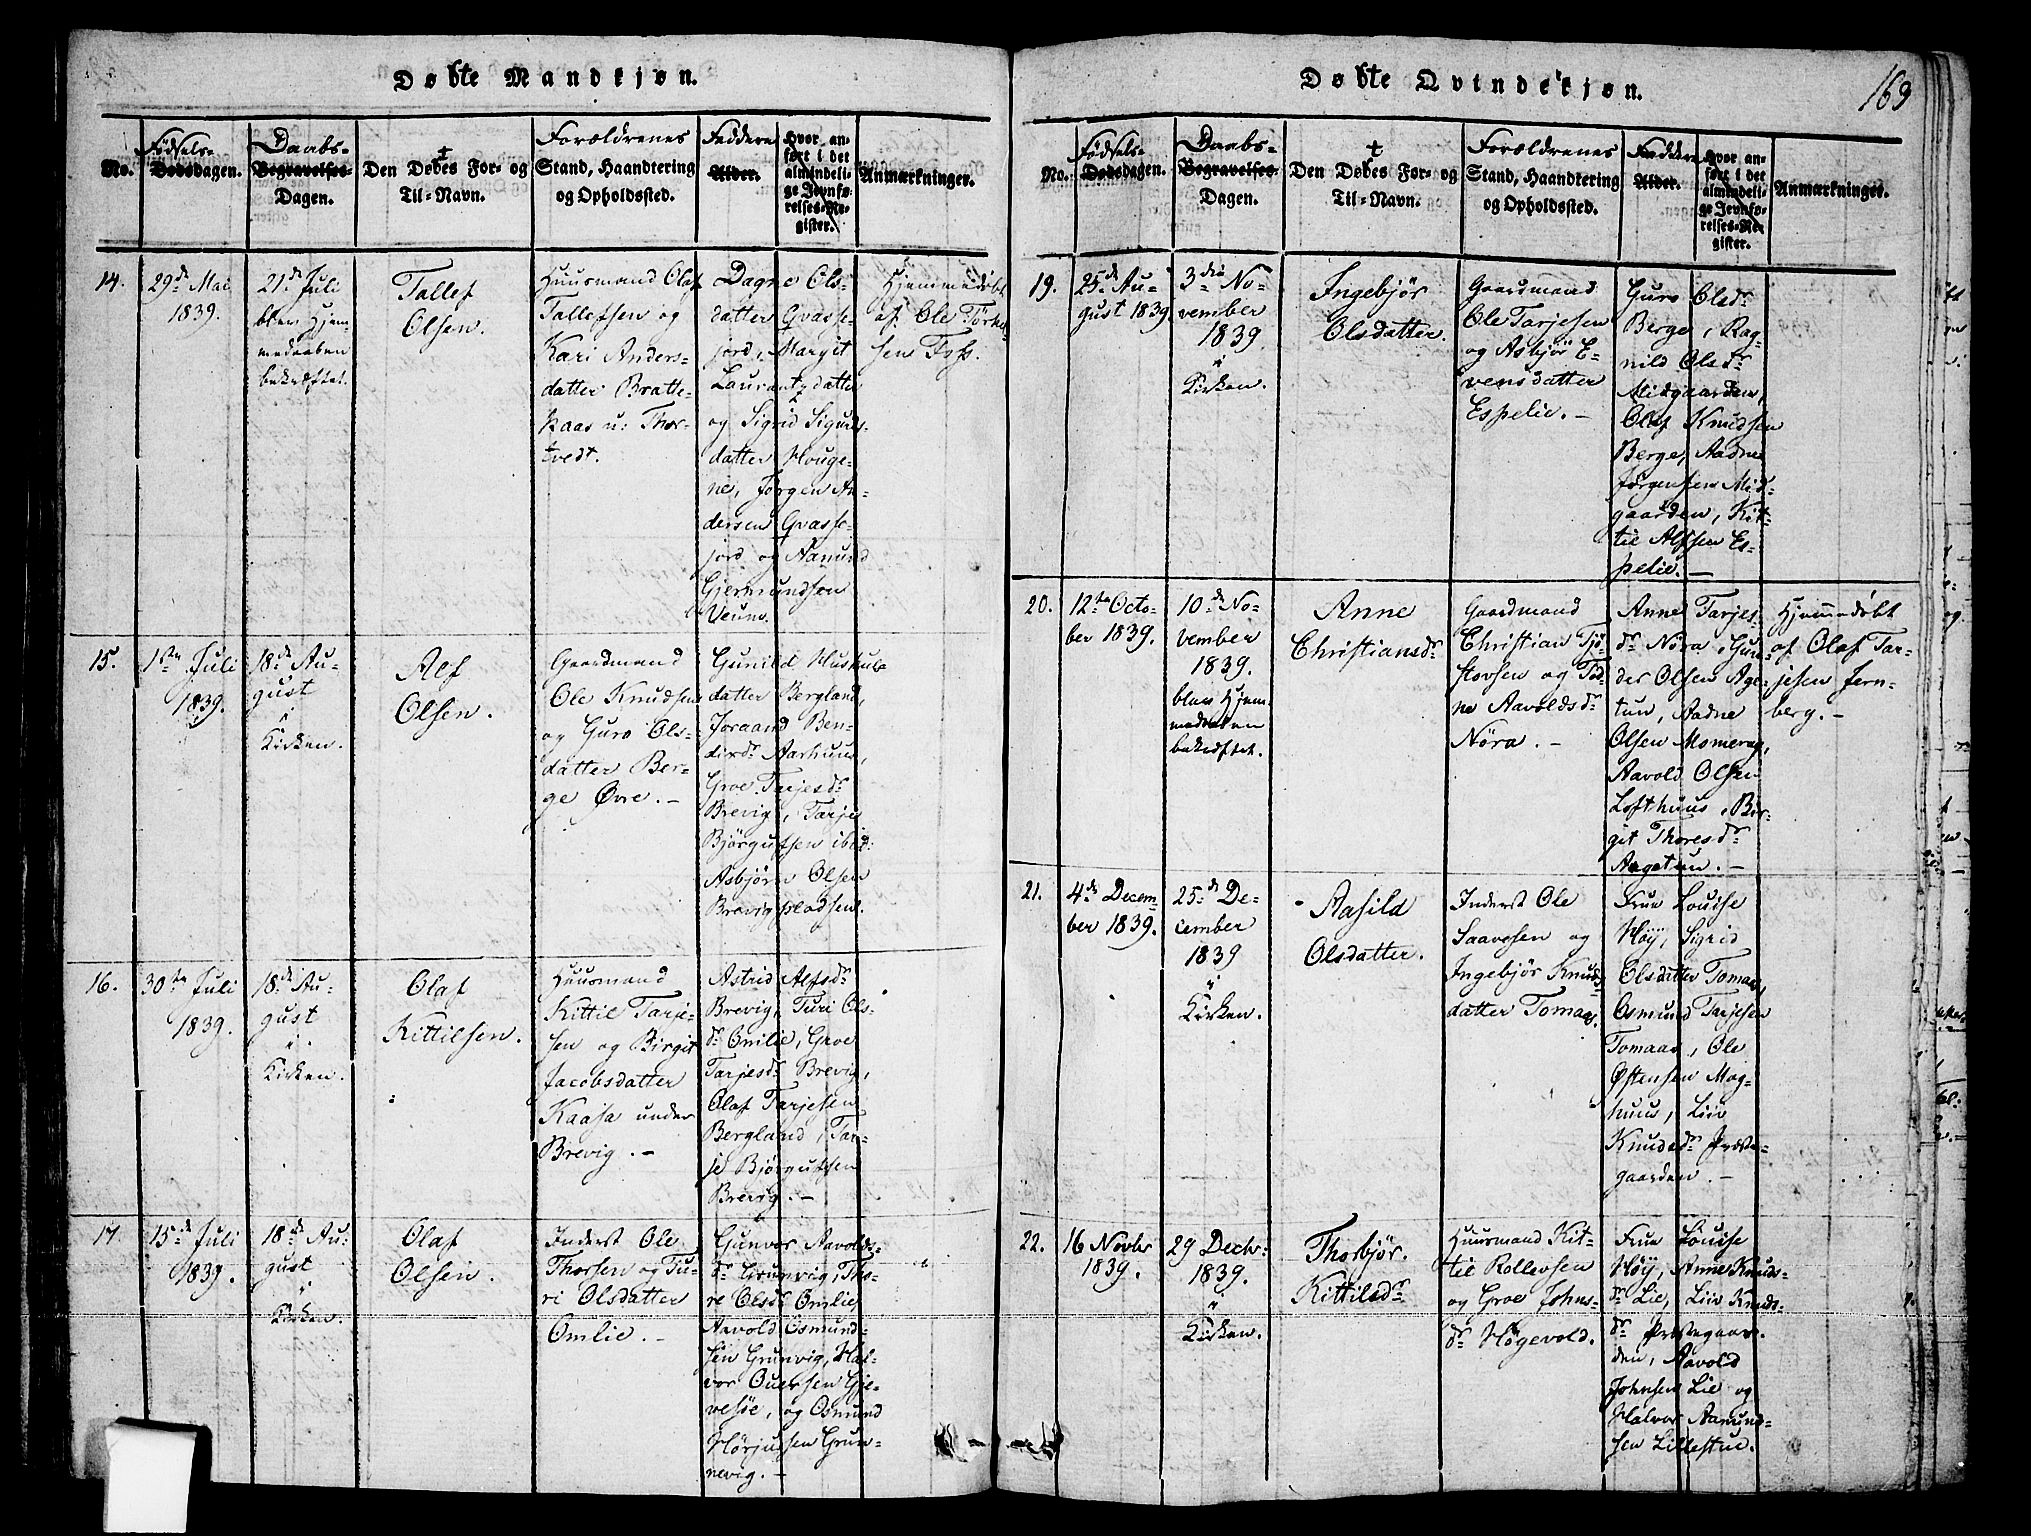 Døbte Mandkjøn.
No.
Fødsels-
Dødsdagen.
Daabs-
Begravelses-
Dagen.
Den Døbtes For- og
Til-Navn.
Forældrenes
Stand, Haandtering
og Opholdssted.
Faddere
Alder.
Hvor an-
ført i det
almindeli-
ge Jevnfø-
relses-Re-
gister.
Anmærkninger.
14.
29de Mai
1839.
21de Juli
blev Hjem
medaaben
bekræftet.
Tallef
Olsen.
Huusmand Olaf
Tallefsen og
Kari Anders-
datter Bratte-
kaas u: Thor-
tvedt.
Dagne Ols-
datter Qvasse-
jord, Margit
Laurantzdatter
og Sigrid Sigurds-
datter Houge-
ne, Jørgen An-
dersen Qvasse-
jord og Aamund
Gjermundsen
Veum.
Hjemmedøbt
af Ole Törke
sen Foss.
15.
1ste Juli
1839.
18de Au-
gust
i
Kirken.
Alf
Olsen.
Gaardmand
Ole Knudsen
og Guro Ols-
datter Ber-
ge Øvre. -
Gunild
datter Bergland,
Joraand Ben-
dirdr Aarhuus,
Groe Tarjesdr
Brevig, Tarje
Björgufsen ibid:
Asbjörn Olsen
Brevigpladsen.
16.
30te Juli
1839.
18de Au-
gust
i
Kirken.
Olaf
Kittilsen.
Huusmand
Kittil Tarje-
sen og Birgit
Jacobsdatter
Kaasa under
Brevig. -
Astrid Alfsdr
Brevig, Turi Ols-
dr Omlie, Groe
Tarjesdr Brevig,
Olaf Tarjesen
Bergland, Tar-
je Björgufsen
Brevig. -
17
15de Juli
1839.
18de Au-
gust
i
Kirken.
Olaf
Olsen.
Inderst Ole
Thorsen og Tu-
ri Olsdatter
Omlie. -
Gunvor Aavolds-
dr Grunvig, Tho-
re Olsdr Omlie
Aavold Osmund-
sen Grunvig, Hal-
vor Ouersen Gje-
vesöe, og Osmund
Hörjusen Grun-
nevig. -
Døbte Qvindekjøn.
169
No.
Fødsels-
Dødsdagen.
Daabs-
Begravelses-
Dagen.
Den Døbtes For- og
Til-Navn.
Forældrenes
Stand, Haandtering
og Opholdssted.
Faddere
Alder.
Hvor an-
ført i det
almindeli-
ge Jevnfø-
relses-Re-
gister.
Anmærkninger.
19.
25de Au-
gust 1839.
3die No-
vember
1839.
i
Kirken.
Ingebjör
Olsdatter.
Gaardmand
Ole Tarjesen
og Asbjör E-
vensdatter
Espelie. -
Guro Olsdr
Berge, Rag-
nild Olsdr
Midgaarden,
Olaf Knudsen
Berge, Aadne
Jörgensen Mid-
gaarden, Kit-
til Alfsen Es-
pelie. -
20.
12te Octo-
ber 1839.
10de No-
vember
1839.
blev Hjem
medaaben
bekræftet.
Anne
Christiansdr
Gaardmand
Christian Tjö-
stovsen og Tod-
ne Aavoldsdr
Nöra. -
Anne Tarjes-
dr Nöra, Gun-
der Olsen Age-
tun, Aadne
Olsen Momerag,
Aavold Olsen
Lofthuus, Bir-
git Thoresdr
Aagetun. -
Hjemmedöbt
af Olaf Tar-
jesen Jern-
berg. -
21.
4de Decem-
ber 1839.
25de De-
cember
1839
i
Kirken.
Aasild
Olsdatter.
Inderst Ole
Saavesen og
Ingebjör Knuds-
datter Tomaas.
Frue Louise
Höy, Sigrid
Olsdatter Tomaas,
Osmund Tarjesen
Tomaas, Ole
Østensen Mog-
huus, Liv
Knudsdr Præste-
gaarden. -
22.
16 Novbr
1839.
29 Decbr
1839.
i
Kirken.
Thorbjör.
Kittilsdr
Huusmand Kit-
til Rollevsen
og Groe Johns-
dr Högevold.
Frue Louise
Höy, Anne Knuds-
dr Lie, Liv Knuds-
dr Præstegaar-
den, Aavold
Johnsen Lie og
Halvor Aamund-
sen Lillestue.